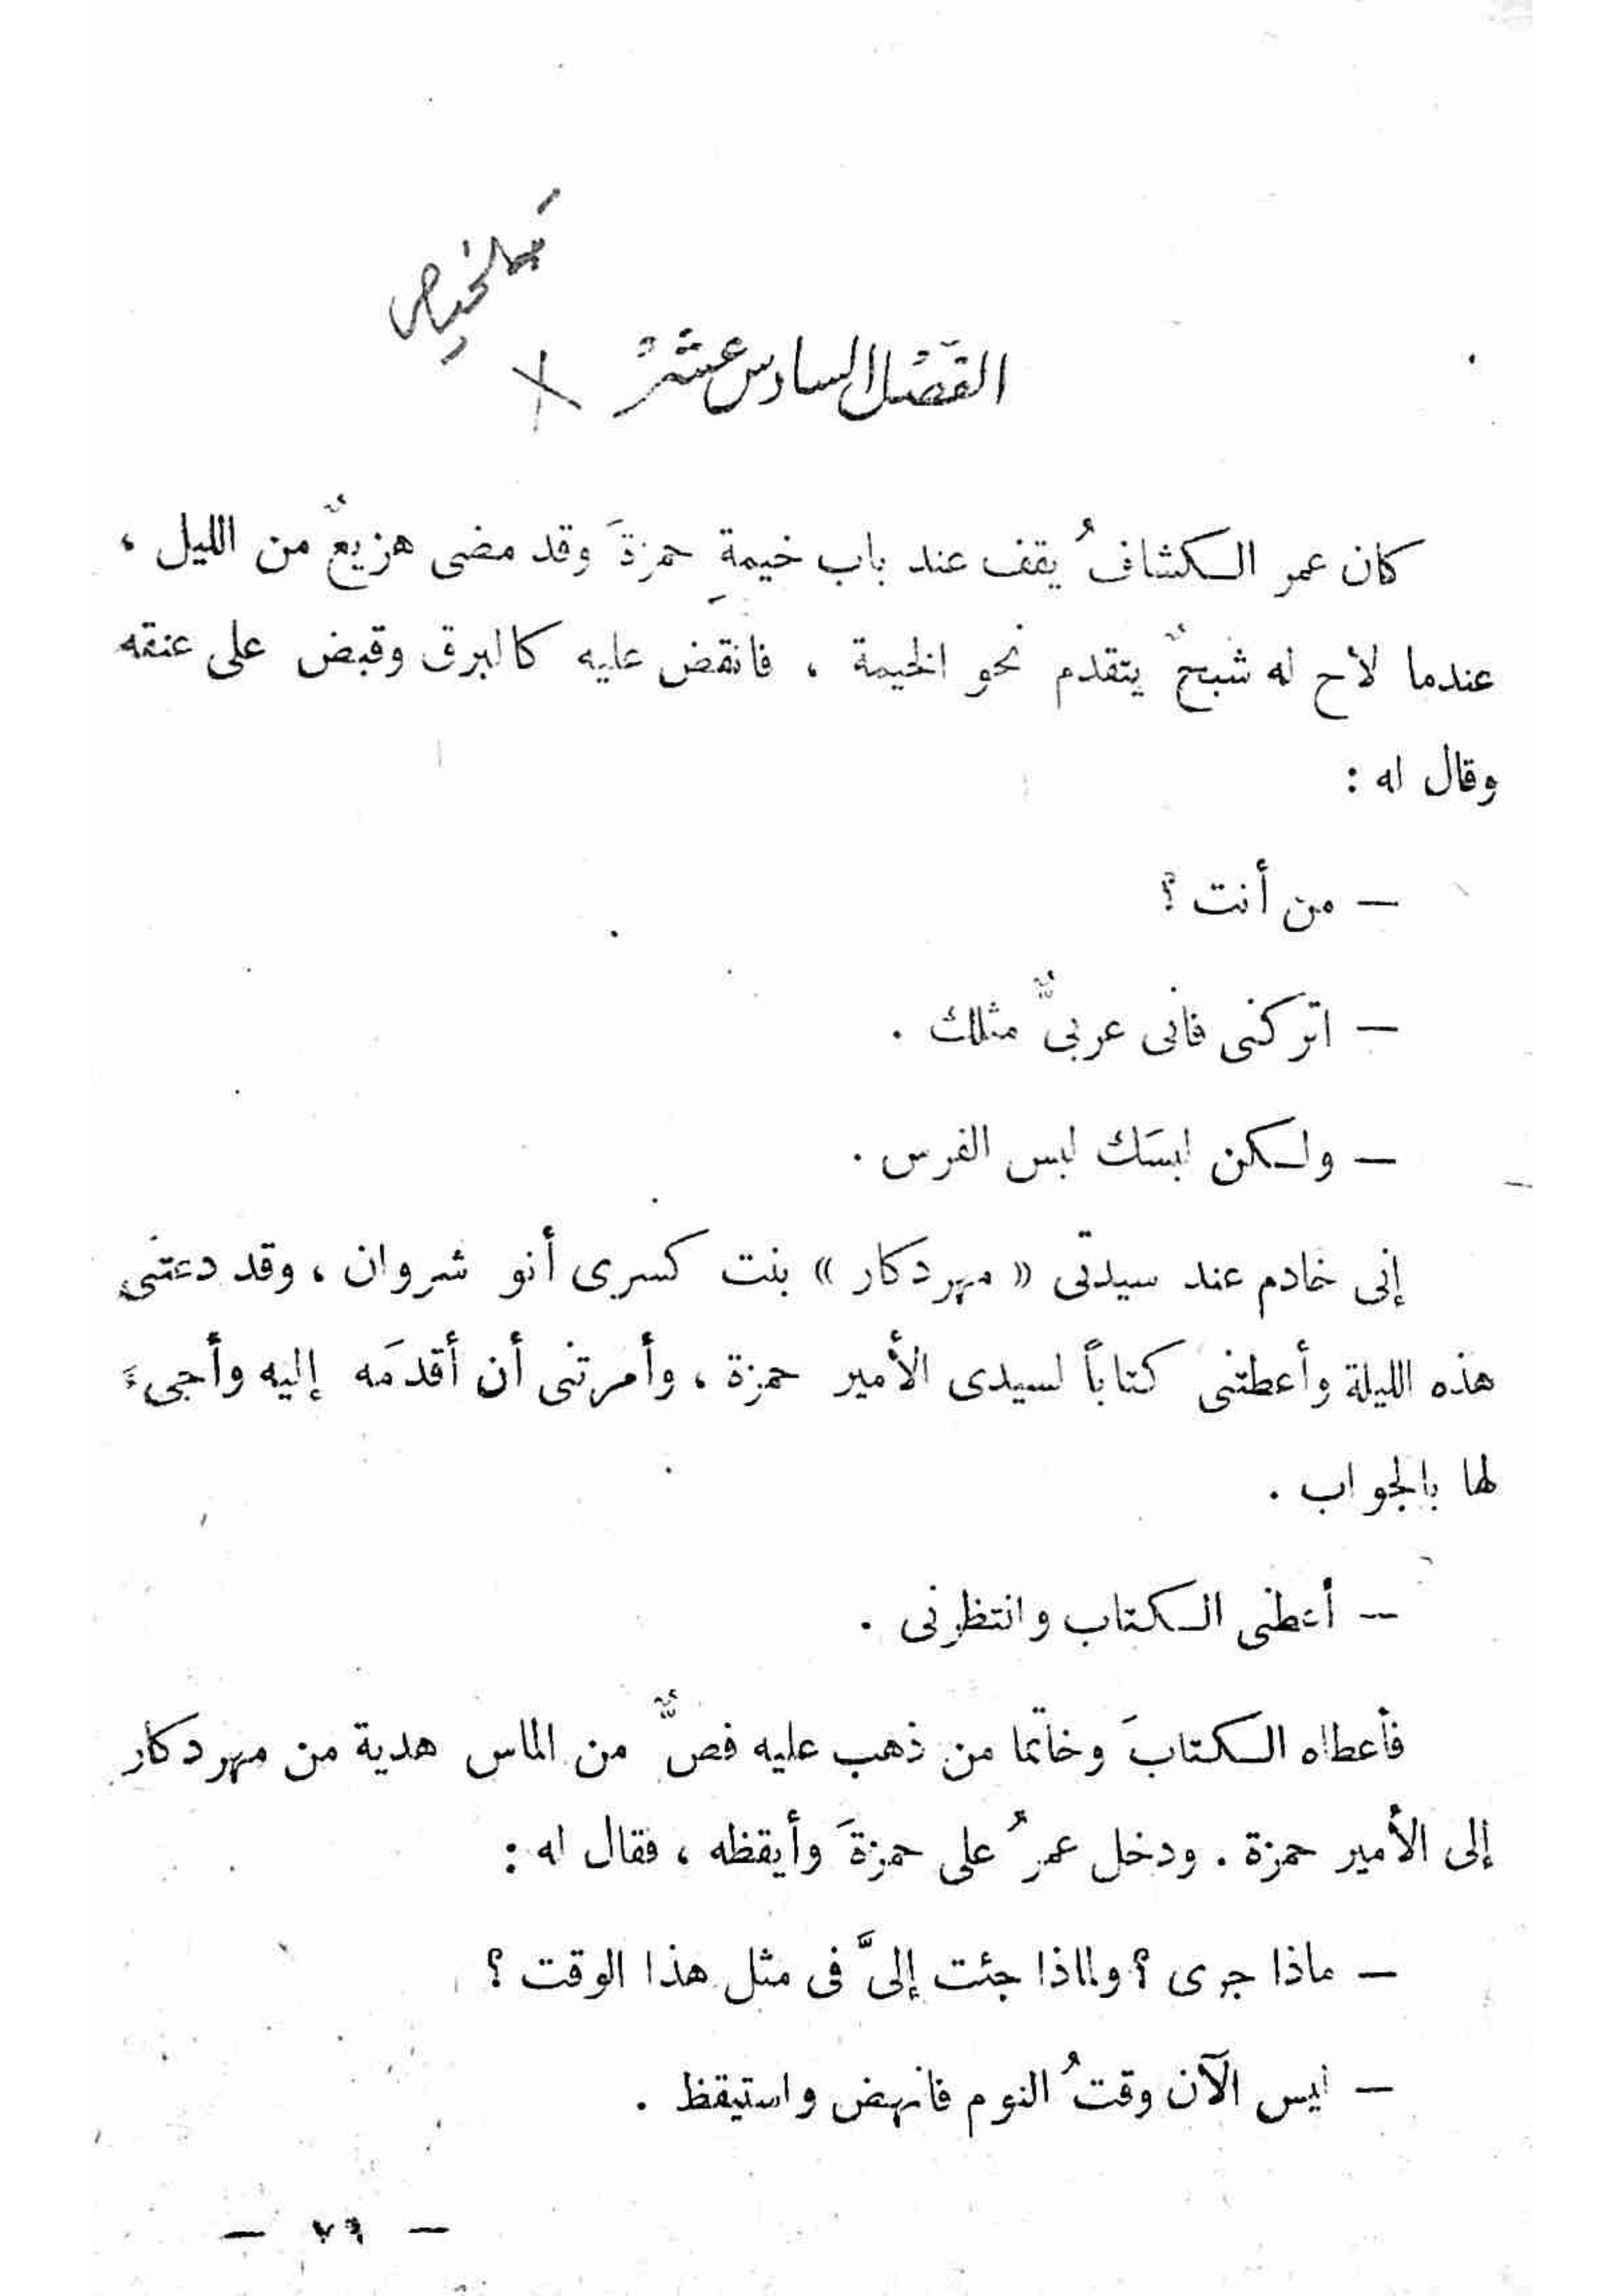 تلخيص
الفصل السادس عشر
كان عمر الكشافُ يقف عند باب خيمةِ حمزةَ وقد مضى هزيعٌ من الليل ،
عندما لاح له شبحٌ يتقدم نحو الخيمة ، فانقض عليه كالبرق وقبض على عنقه
وقال له :
— من أنت ؟
— اتركنى فانى عربىٌّ مثلك .
— ولكن لبسَك لبس الفرس .
إنى خادم عند سيدتى « مهردكار » بنت كسرى أنو شروان ، وقد دعتنى
هذه الليلة وأعطتنى كتاباً لسيدى الأمير حمزة ، وأمرتنى أن أقدمَه إليه وأجىءَ
لها بالجواب .
— أعطنى الكتاب وانتظرنى .
فأعطاه الكتابَ وخاتما من ذهب عليه فصٌّ من الماس هدية من مهردكار
إلى الأمير حمزة . ودخل عمرُ على حمزةَ وأيقظه ، فقال له :
— ماذا جرى ؟ ولماذا جئت إلىَّ فى مثل هذا الوقت ؟
— ليس الآن وقتُ النوم فانهض واستيقظ .
— ٧٩ —